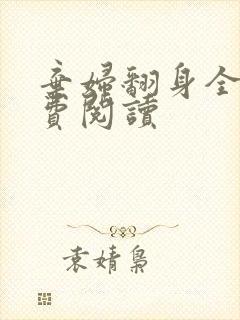 棄婦翻身全
費閱讀
袁婧梟